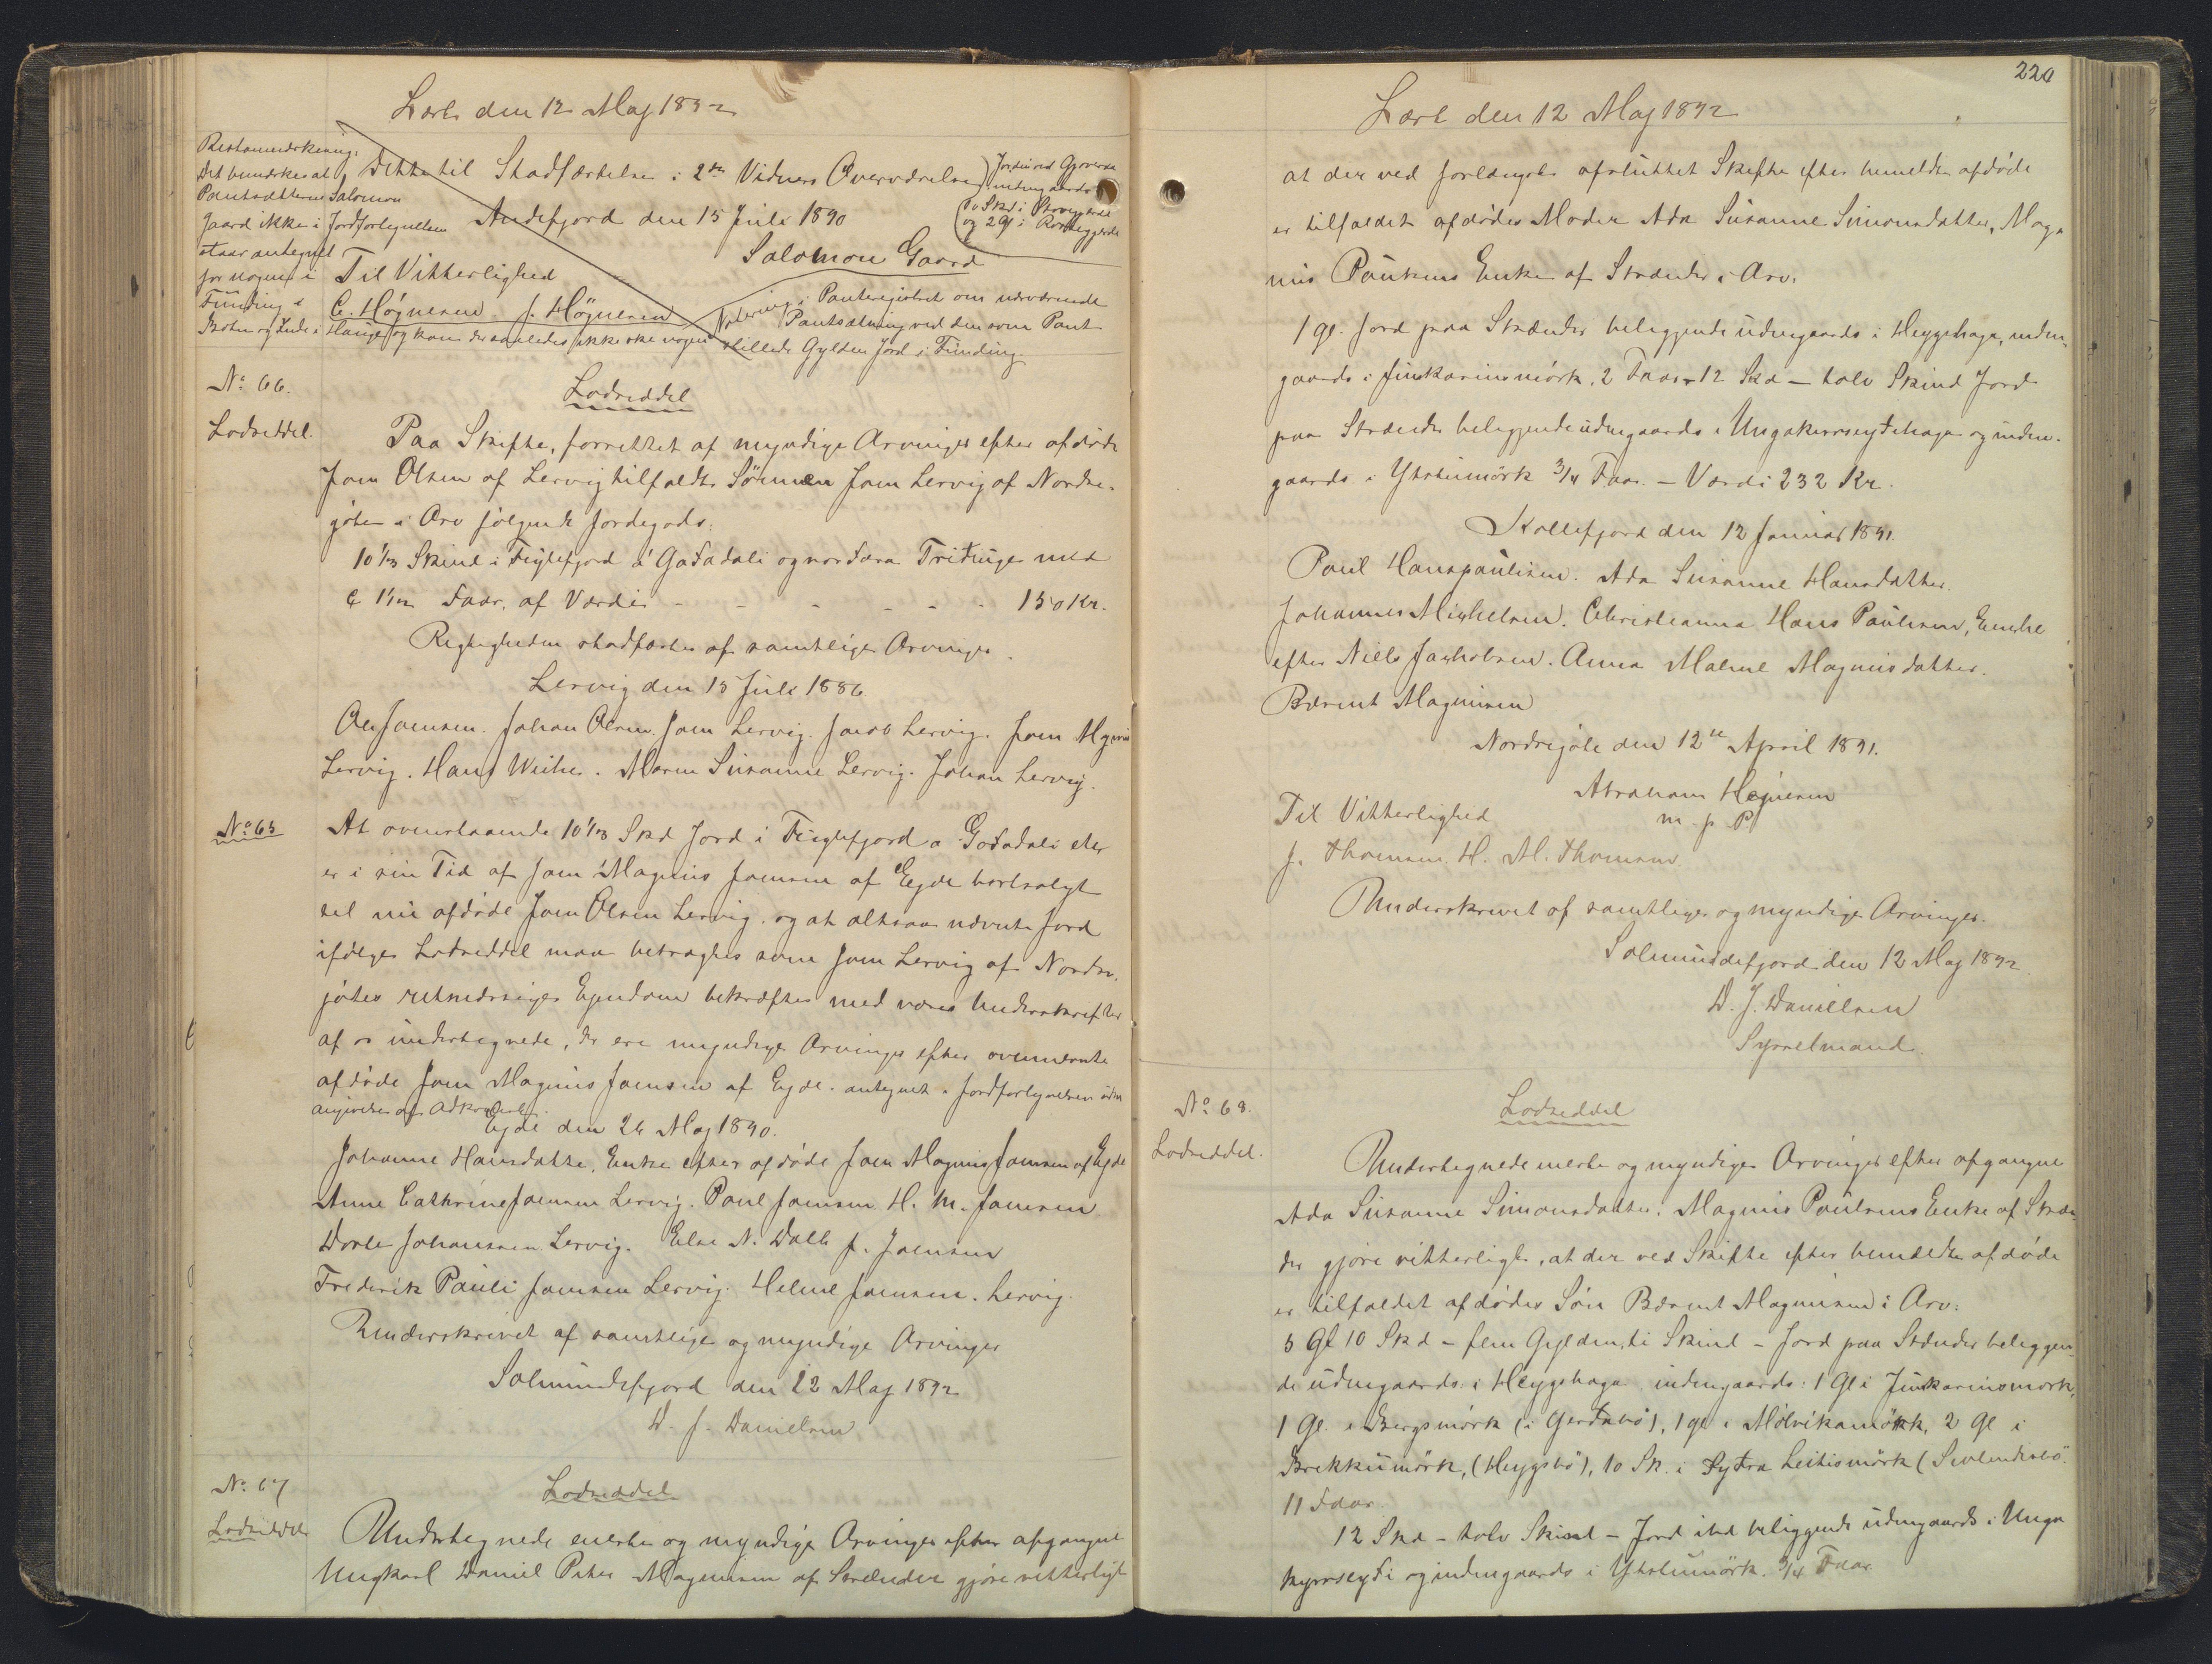 Læst den 12 Maj 1892
Retsanmærkning:
Det bemærkes at
Pantsætteren Salomon
Gaard ikke i Jordfortegnelsen
staar antegnet
for nogen i
Funding i
Botn og Inde i Hauge og kan der saaledes ikke ske nogen
Dette til Stadfæstelse i 2de Vidners Overværelse
Andefjord den 15 Juli 1890
Salomon Gaard
Til Vitterlighed
C. Høgnesen J. Högnesen
Notering i Panteregistret om nærværende
Pantsætning ved den som Pant
stillede Gylden Jord i Funding.
No 66.
Lodseddel.
Lodseddel
Paa Skifte, forrettet af myndige Arvinger efter afdøde
Joen Olsen af Lervig tilfaldt Sönnen Joen Lervig af Nordre-
göte i Arv følgende Jordegods:
10 1/3 Skind i Fuglefjord á Gaðadali og norðara Triðinge med
1 1/2 Faar, af Værdi - - - - - 150 Kr.
Rigtigheden stadfæstes af samtlige Arvinger.
Lervig den 15 Juli 1886
Ole Joensen. Johan Olsen. Joen Lervig. Jacob Lervig. Joen Magnus
Lervig. Hans Weihe. Maren Susanne Lervig. Johan Lervig.
No 65
At ovenstaaende 10 1/3 Skd Jord i Fuglefjord a Gaðadali eller
er i sin Tid af Joen Magnus Joensen af Ejde bortsolgt
til nu afdøde Joen Olsen Lervig, og at altsaa nævnte Jord
ifølge Lodseddel maa betragtes som Joen Lervig af Nordre-
götes retmæssige Ejendom bekræftes med vores Underskrifter
af os undertegnede, der ere myndige Arvinger efter ovennævnte
afdøde Joen Magnus Joensen af Ejde. antegnet i Jordfortegnelsen uden
angivelse af Adkomst.
Ejde den 26 Maj 1890.
Johanne Hansdatter, Enke efter afdøde Joen Magnus Joensen af Ejde
Anne Cathrine Joensen Lervig. Poul Joensen H. M. Joensen
Dorte Johannesen Lervig. Else N. Dalb J. Joensen
Frederik Pauli Joensen Lervig. Helene Joensen. Lervig.
Underskrevet af samtlige og myndige Arvinger
Solmundefjord den 12 Maj 1892
D. J. Danielsen
No 67
Lodseddel
Lodseddel
Undertegnede eneste og myndige Arvinger efter afgangne
Ungkarl Daniel Peter Magnusen af Strænder gjøre vitterligt
220
Læst den 12 Maj 1892
at der ved forlængst afsluttet Skifte efter bemeldte afdøde
er tilfaldet afdødes Moder Ada Susanne Simonsdatter, Mag-
nus Poulsens Enke af Strænder i Arv:
1 gl. Jord paa Strænder beliggende udengaards i Heygshaga, inden-
gaards i Junkarinsmörk. 2 Faar 12 Skd - tolv Skind Jord
paa Strænder beliggende udengaards i Ungakurseyðshaga og inden-
gaards i Ytstumörk 3/4 Faar. - Værdi 232 Kr.
Kollefjord den 12 Januar 1891.
Poul Hanspaulisen. Ada Susanne Hansdatter.
Johannes Mighelsen. Christianna Hans Poulsen, Encke
efter Niels Jachobsen. Anna Malene Magnusdatter.
Bærent Magnusen
Nordregöte den 12te April 1891.
Abraham Hojnesen
m. p. P.
Til Vitterlighed
J. Thomsen. H. M. Thomsen
Underskrevet af samtlige og myndige Arvinger.
Solmundefjord den 12 Maj 1892
D. J. Danielsen
Sysselmand.
No 68.
Lodseddel.
Lodseddel
Undertegnede eneste og myndige Arvinger efter afgangne
Ada Susanne Simonsdatter, Magnus Poulsens Enke af Stræn-
der gjöre vitterligt, at der ved Skifte efter bemeldte afdøde
er tilfaldet afdødes Søn Bærent Magnusen i Arv:
5 Gl 10 Skd - fem Gylden, ti Skind - Jord paa Strænder beliggen-
de udengaards i Heygshaga indengaards: 1 Gl i Junkarinsmörk,
1 Gl. i Bergsmörk (i Gerðabø), 1 gl. i Mölvikamörk, 2 Gl i
Brekkumörk, (Heygsbø), 10 Sk. i Fyðra Leitismörk
11 Faar.
12 Skd - tolv Skind - Jord ibd beliggende udengaards i Unga
kurseyði og indengaards i Ytstumörk. 3/4 Faar